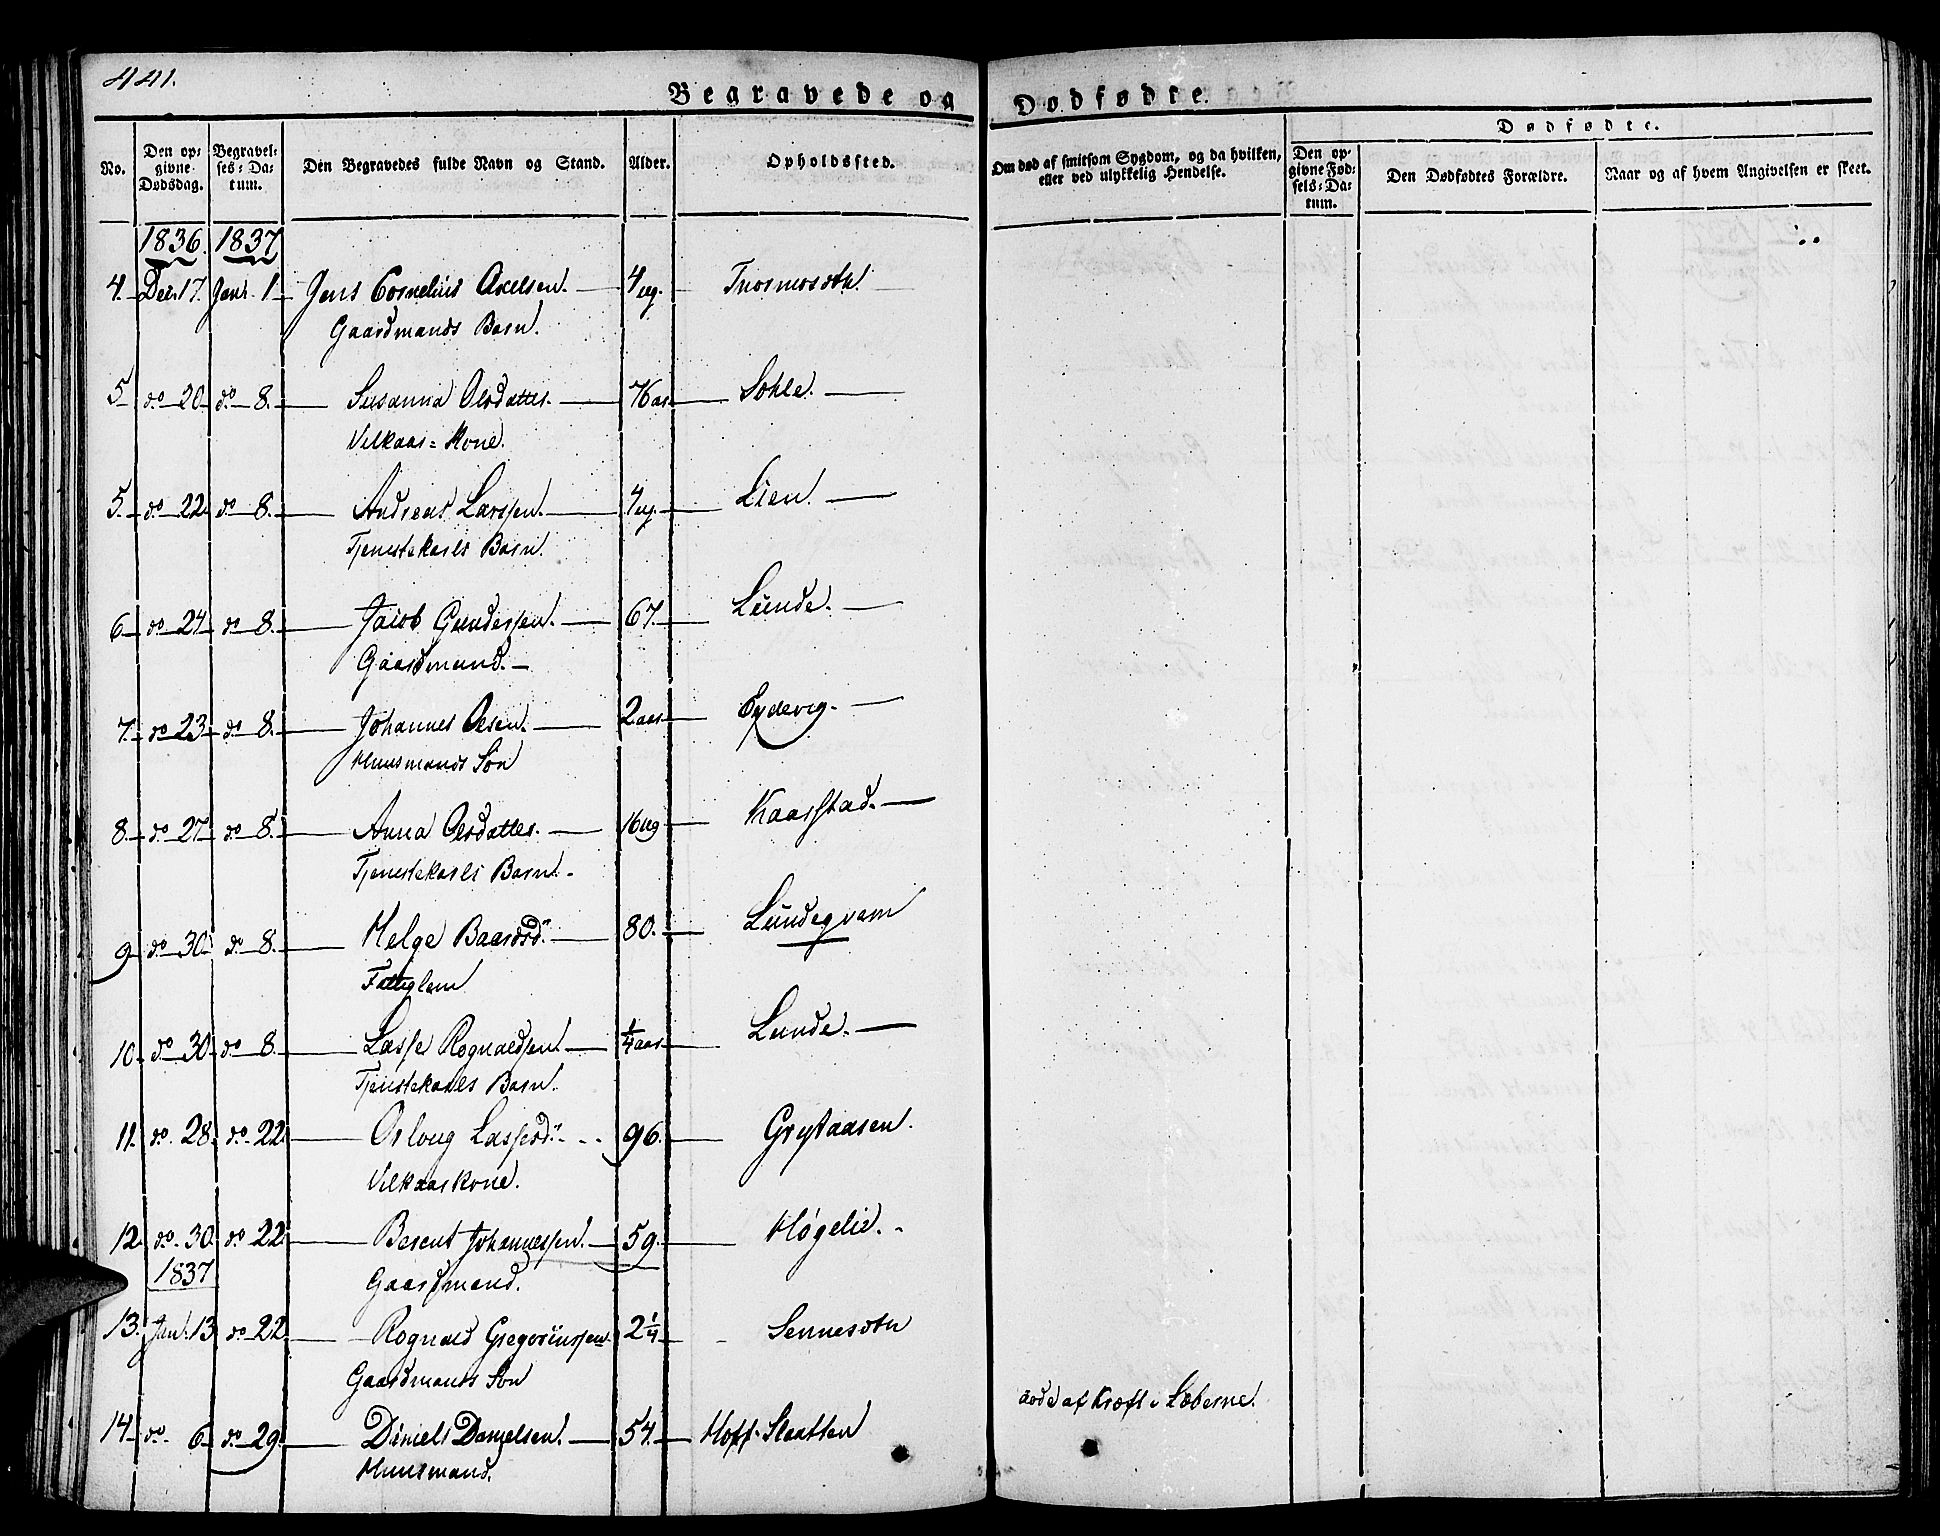 441.
Begravede og Dødfødte.
No.
Den op-
givne
Dødsdag.
Begravel-
ses-Da-
tum.
Den Begravedes fulde Navn og Stand.
Alder.
Opholdssted.
Om død af smitsom Sygdom, og da hvilken,
eller ved ulykkelig Hendelse.
Dødfødte.
Den op-
givne Fød-
sels-Da-
tum.
Den Dødfødtes Forældre.
Naar og af hvem Angivelsen er skeet.
1836. 1837
4. Dec. 17. Janr. 1 Jens Cornelius Axelsen. 4 ug.
Gaardmands Barn.
5 do 20 do 8. Susanna Olsdatter. 76 aar Sohle.
Vilkaar-Kone.
5. do 22 do 8. Andreas Larssen. 4 ug. Lien.
Tjenestekarls Barn.
6 do 24 do 8. Jacob Gundersen. 67. Lunde.
Gaardmand.
7. do 23 do 8. Johannes Olsen. 2 aar Eydevig.
Huusmands Søn
8. do 27 do 8. Anna Olsdatter. 16 ug Kaarstad.
Tjenestekarls Barn.
9 do 30. do 8. Helge Baardsdr. 80. Lundeqvam
Fattiglem
10. do 30 do 8. Lasse Rognaldsen. 1/4 aar Lunde.
Tjenestekarls Barn.
11. do. 28. do 22. Osloug Lassesdr. 96. Grytaasen.
Vilkaarkone.
12. do. 30. do 22. Berent Johannessen. 59. Høgelid.
1837
Gaardmand.
13. Jan. 13 do 22. Rognald Gregoriussen 2 1/4
Gaardmands Søn
14. do 6 do 29. Daniels Danielsen. 54. Hoff-Slaatten døde af Kræft i Læberne.
Huusmand.